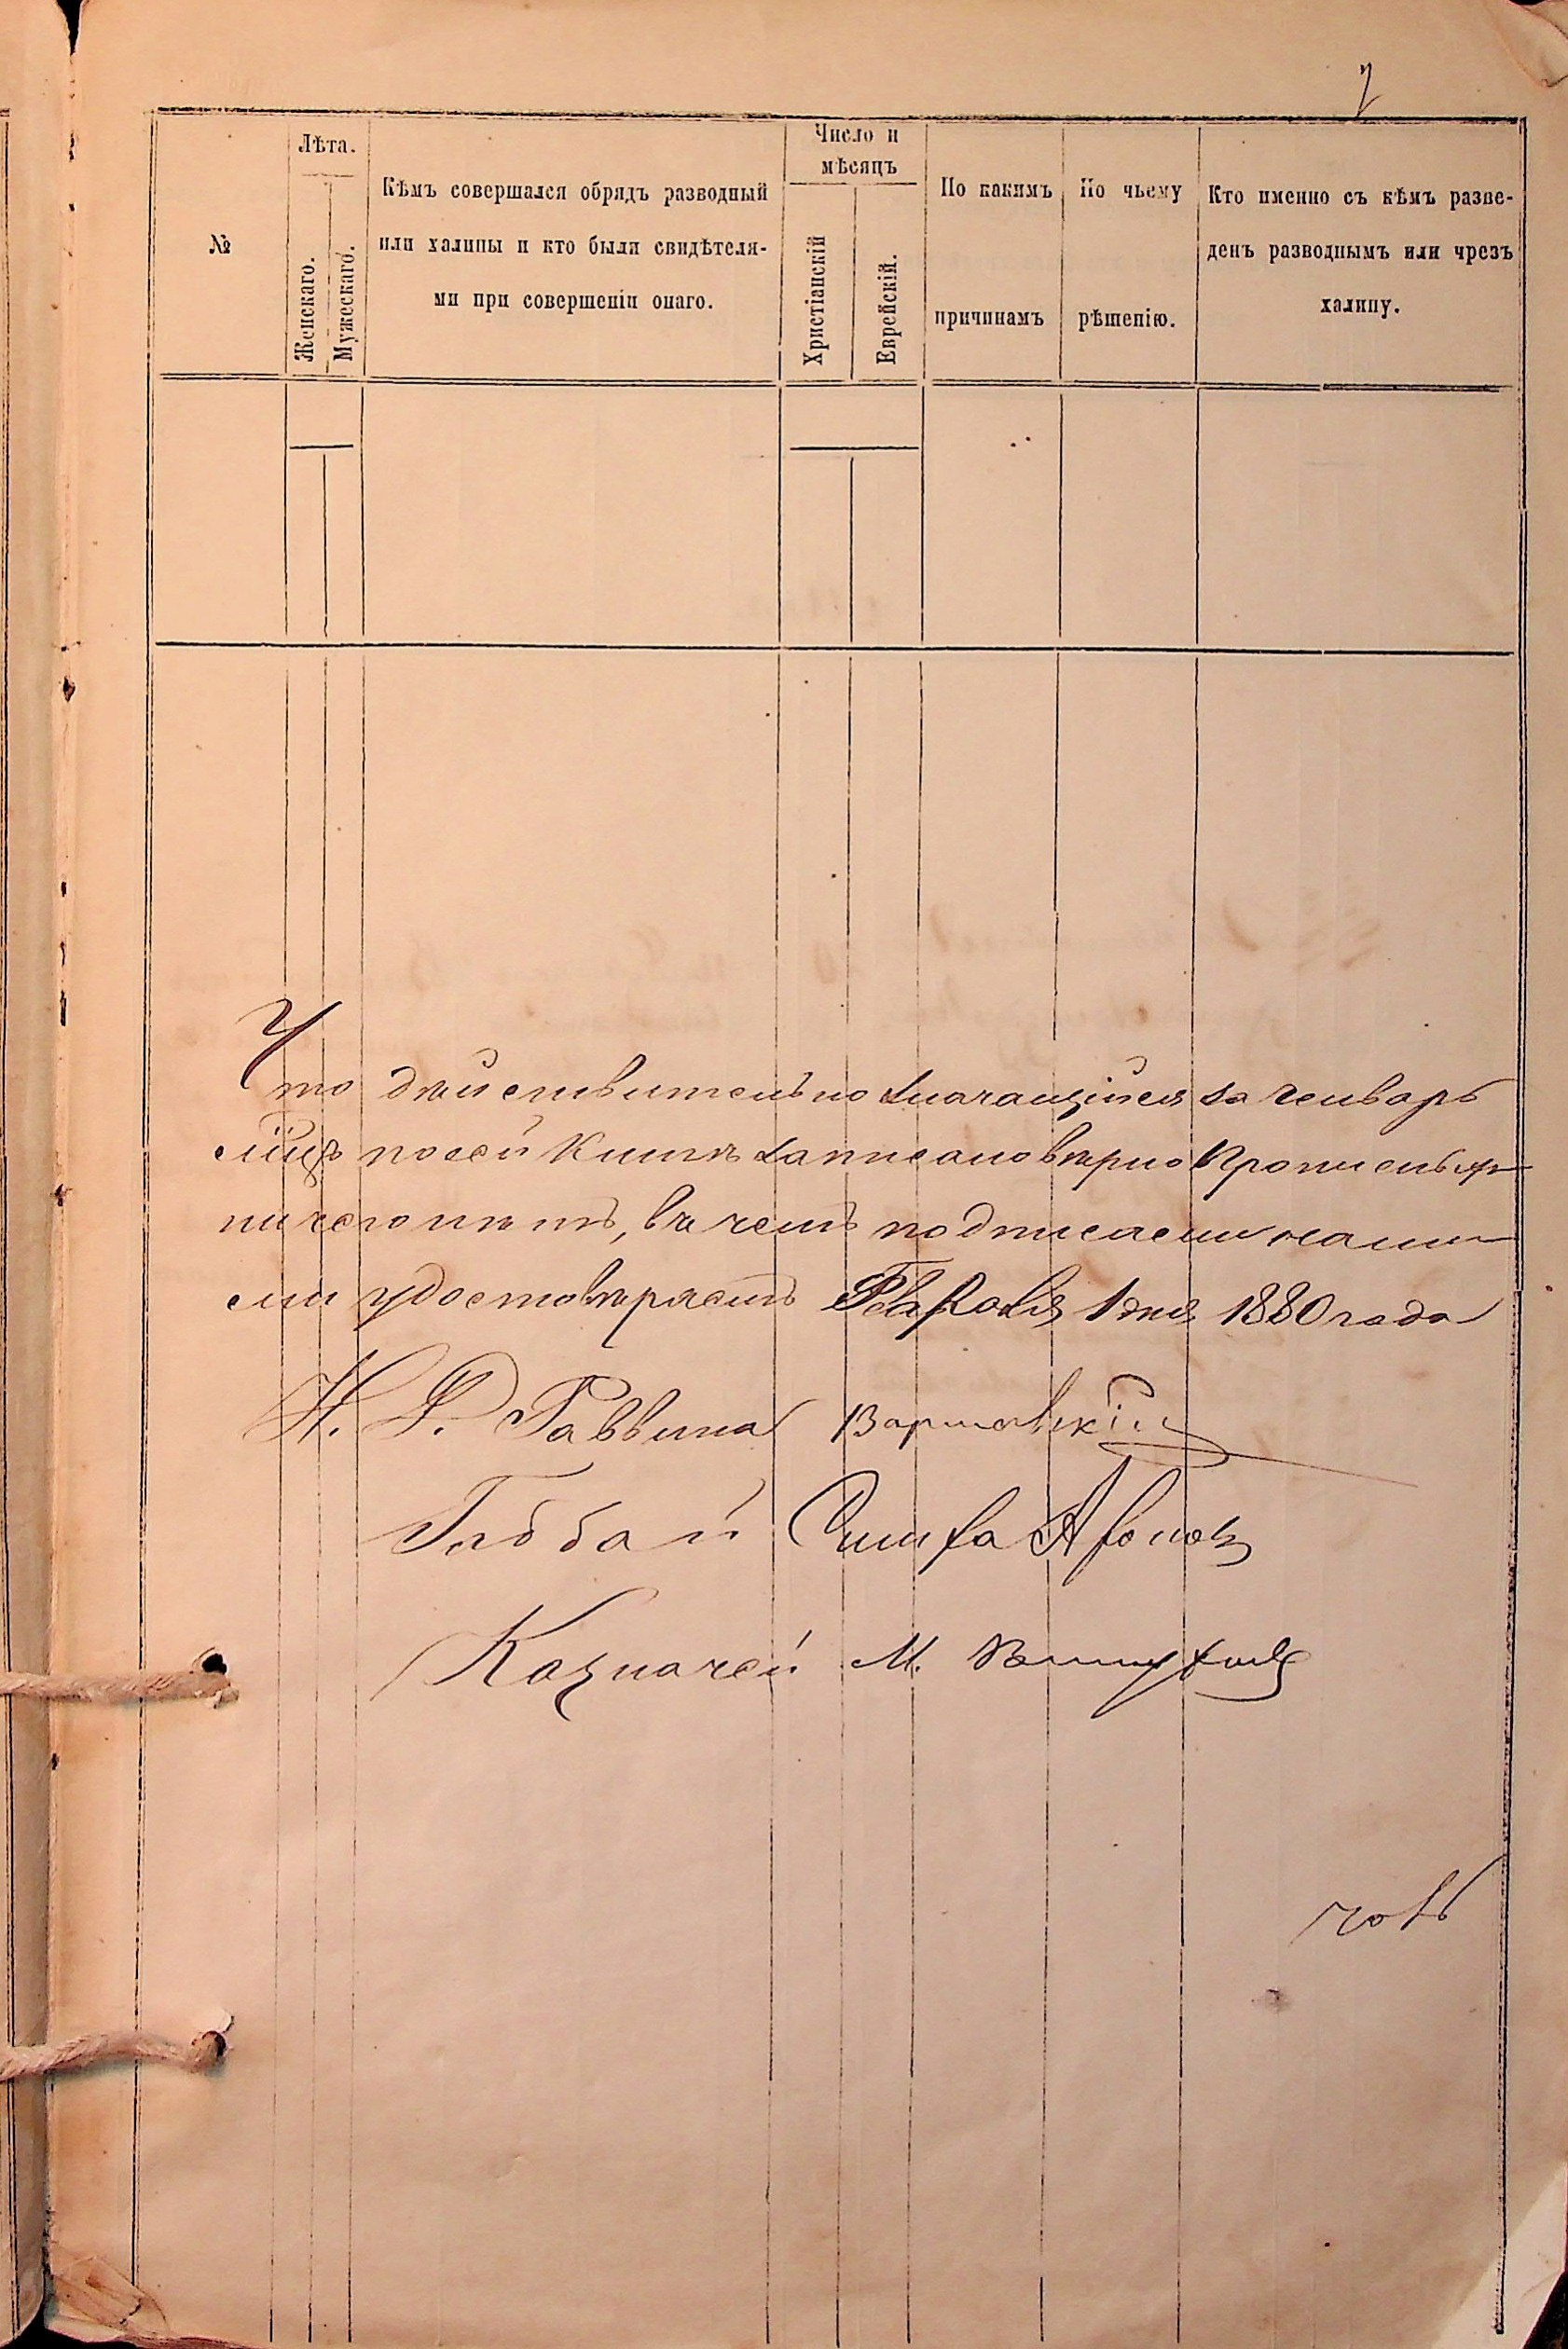 2
№
Лѣта.
Женскаго.
Мужескаго.
Кѣмъ совершался обрядъ разводный
или халицы и кто были свидѣтеля-
ми при совершеніи онаго.
Число и
мѣсяцъ
Христіанскій
Еврейскій.
По какимъ
причинамъ
По чьему
рѣшенію.
Кто именно съ кѣмъ разве-
денъ разводнымъ или чрезъ
халицу.
Что дѣйствительно значащіися за Генварь
мцъ по сей книгѣ записано вѣрно
ничего нѣтъ, въ чемъ подписаеми наши
ми удостовѣряемъ Февраля 1 дня 1880 года
И. Д. Раввина Варшавскій
Габбай Симха
Казначей М.